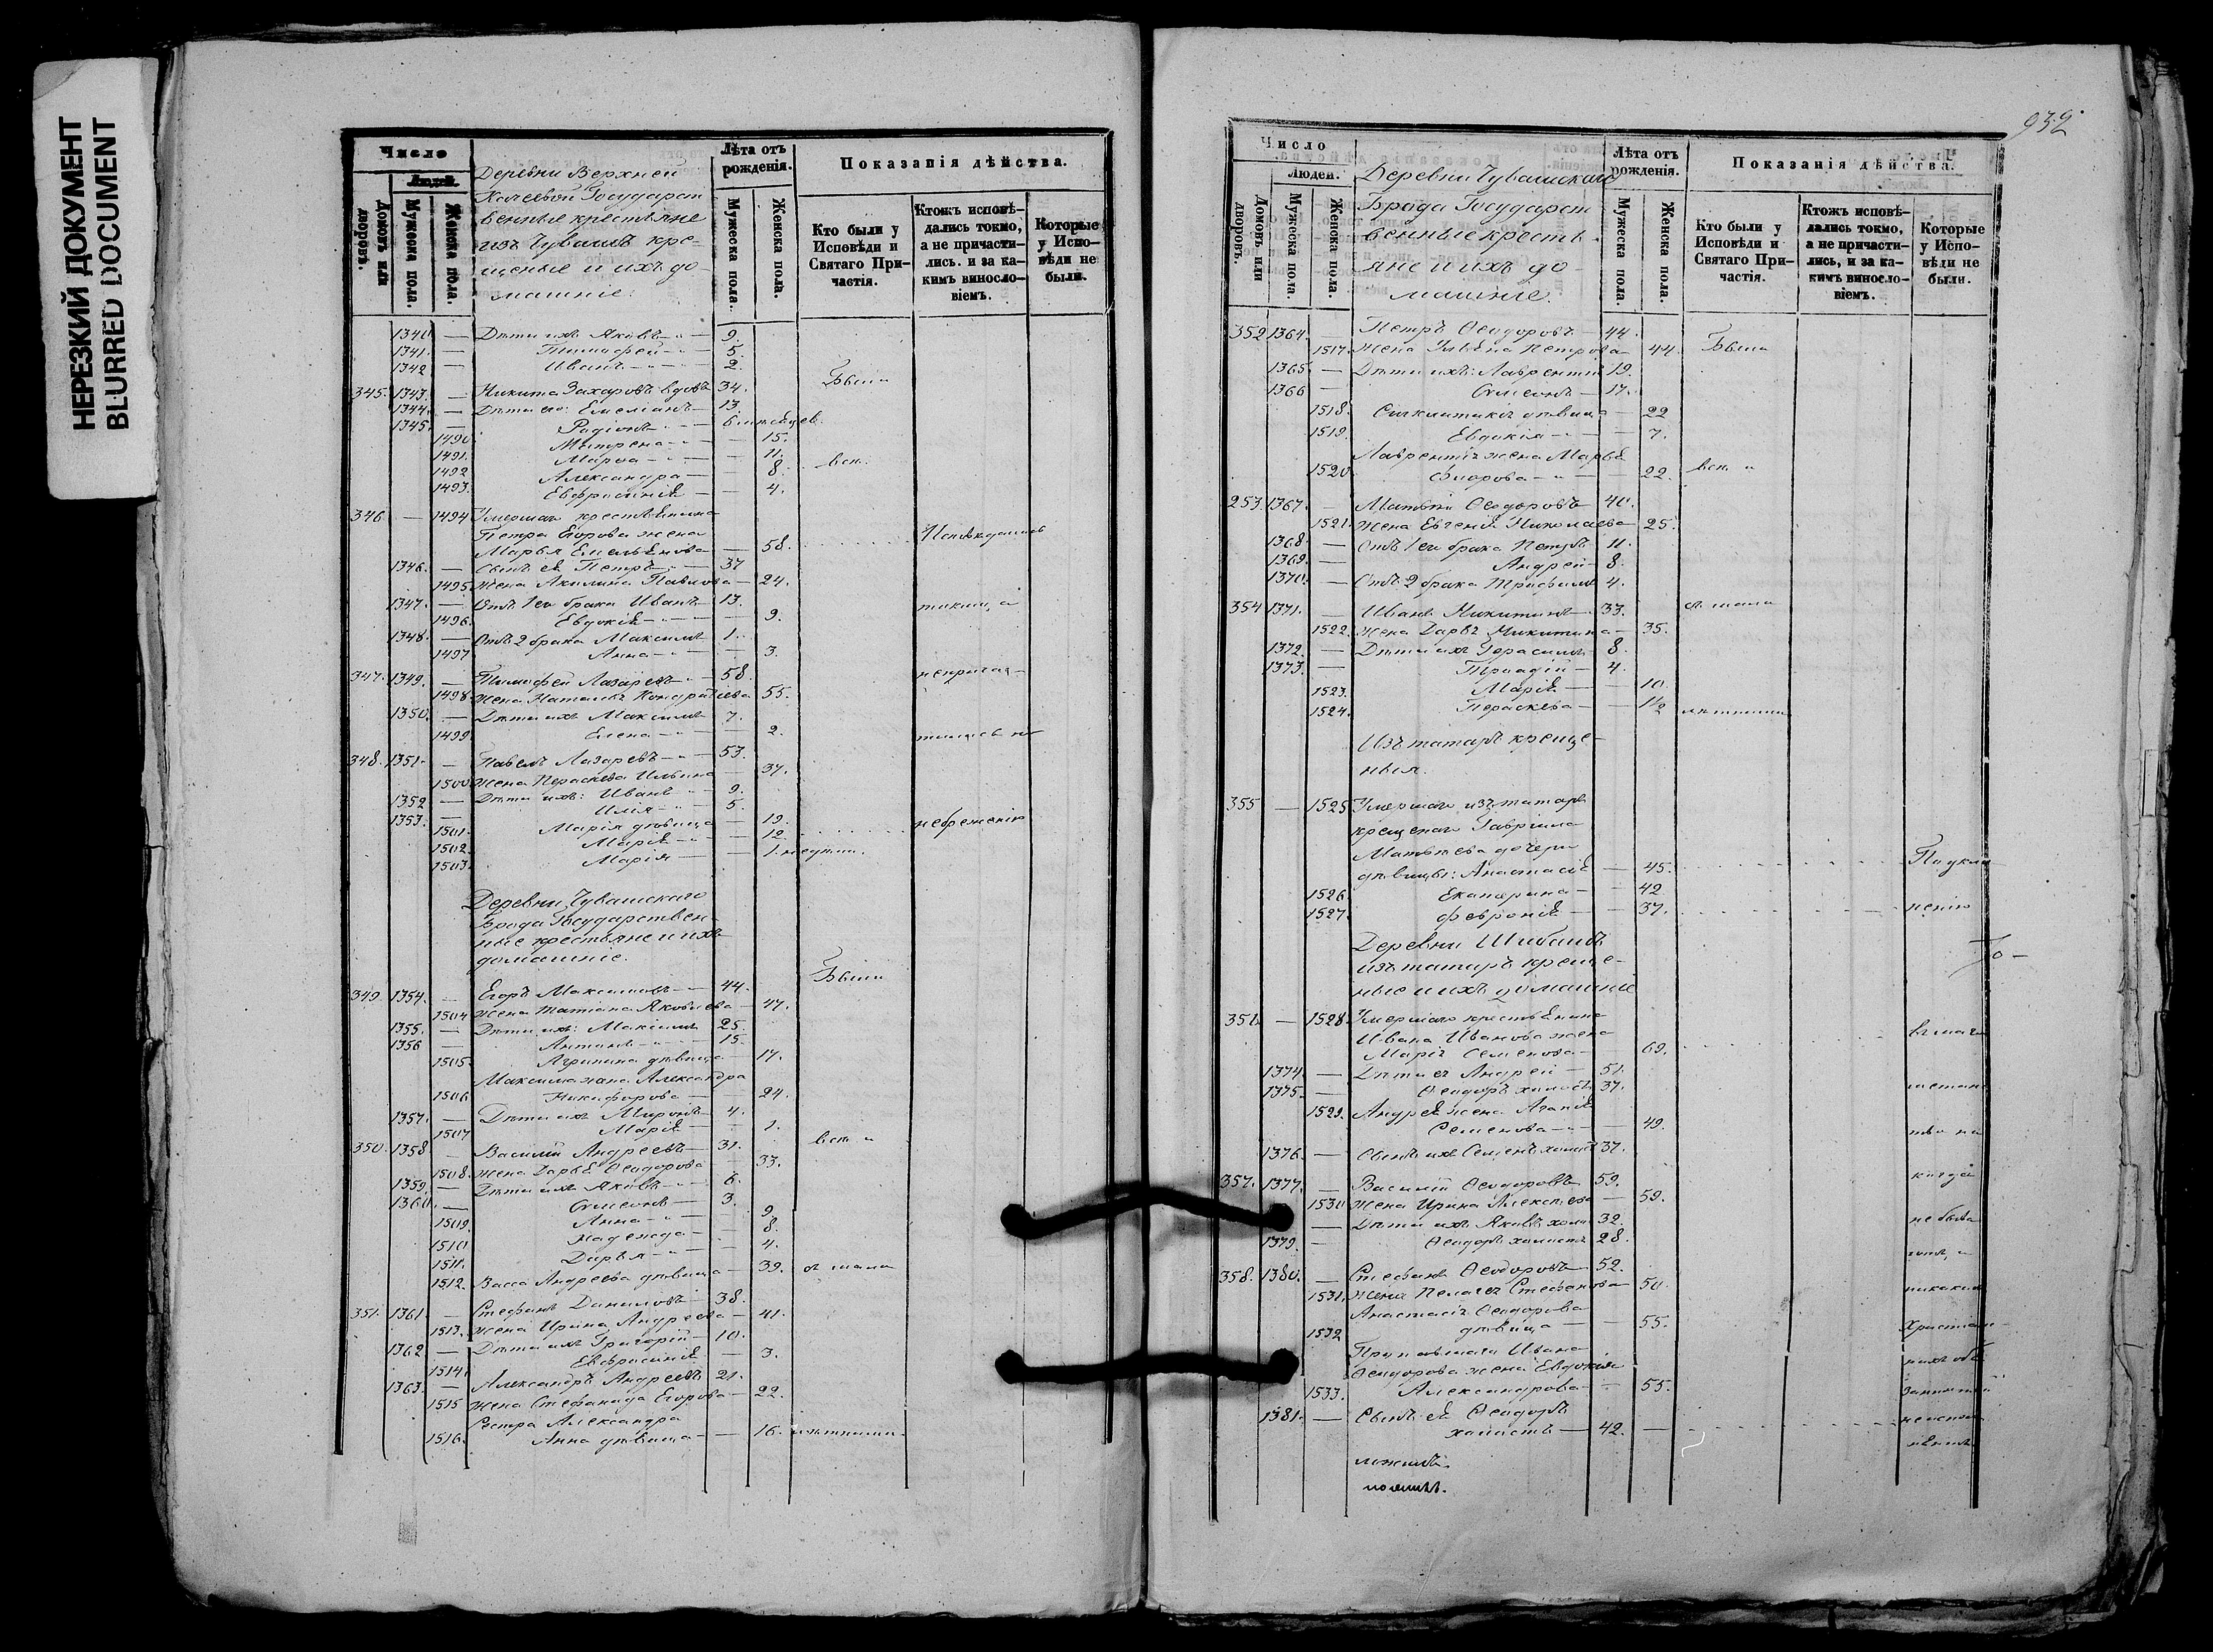 НЕРЕЗКИЙ ДОКУМЕНТ
BLURRED DOCUMENT
Число
Людей.
Домовъ или дворовъ.
Мужеска пола.
Женска пола.
Деревни Верхней
Качеевой Государст
венные крестьяне
изъ Чувашъ кре-
щеные и ихъ до-
машніе.
Лѣта отъ рожденія.
Мужеска пола.
Женска пола.
Показанія дѣйства.
Кто были у Исповѣди и Святаго При-частія.
Ктожъ исповѣ-дались токмо, а не причасти-лись. и за ка-кимъ винosло-віемъ.
Которые у Испо-вѣди не были.
1340. — Дѣти ихъ Яковъ — 9.
1341. — Тимофей — 5.
1342 — Иванъ — 2.
345. 1343. — Никита Захаровъ вдовъ 34. Были
1344. — Дѣти его: Емеліанъ — 13.
1345. — Родіонъ — 6 мѣсяцев.
1490. Матрена — 15.
1491. Марѳа — 11.
1492 Александра — 8. всѣ.
1493. Евфросинія — 4.
346 — 1494 Умершаго крестьянина
Петра Егорова жена
Марья Емельянова — 58. Исповѣдались
1346. — Сынъ ея Петръ — 37
1495 Жена Акилина Павлова — 24.
1347. — Отъ 1го брака Иванъ — 13. токмо, а
1496. Евдокія — 9.
1348. — Отъ 2 брака Максимъ 1.
1497 Анна — 3.
347. 1349. — Тимофей Лазаревъ — 58. непричая-
1498. Жена Наталья Кондратьева 55.
1350. — Дѣти ихъ Максимъ 7.
1499. Елена — 2.
348. 1351. — Павелъ Лазаревъ — 53.
1500 Жена Параскева Ильина — 37.
1352 — Дѣти ихъ: Иванъ 9.
1353. — Илія — 5.
1501. Марія дѣвица — 19. небреженію
1502. Марія — 12.
1503. Марія — 1.
Деревни Чувашскаго
Брода Государствен-
ные крестьяне и ихъ
домашніе.
349. 1354. — Егоръ Максимовъ — 44. Были
1504 Жена Татіана Яковлева — 47.
1355. — Дѣти ихъ: Максимъ 25.
1356 — Антонъ — 15.
1505. Агрипина дѣвица — 17.
Максима жена Александра
1506 Никифорова — 24.
1357. — Дѣти ихъ Миронъ 4.
1507 Марія — 1.
350. 1358 — Василій Андреевъ — 31. всѣ и
1508. Жена Дарья Ѳеодорова — 33.
1359 — Дѣти ихъ Яковъ — 6.
1360. — Симеонъ — 3.
1509. Анна — 9.
1510 Надежда — 8.
1511. Дарья — 4.
1512. Васса Андреева дѣвица — 39.
351. 1361. — Стефанъ Даниловъ — 38.
1513. Жена Ирина Андреева — 41.
1362 — Дѣти ихъ Григорій — 10.
1514. Евфросинія — 3.
1363. — Александръ Андреевъ 21.
1515 Жена Стефанида Егорова — 22.
Сестра Александра
1516. Анна дѣвица — 16.
932
Число
Людей.
Домовъ или дворовъ.
Мужеска пола.
Женска пола.
Деревни Чувашскаго
Брода Государст
венные кресть-
яне и ихъ до-
машніе.
Лѣта отъ рожденія.
Мужеска пола.
Женска пола.
Показанія дѣйства.
Кто были у Исповѣди и Святаго При-частія.
Ктожъ исповѣ-дались токмо, а не причасти-лись, и за ка-кимъ винosло-віемъ.
Которые у Испо-вѣди не были.
352 1364. — Петръ Ѳеодоровъ — 44.
1517. Жена Ульяна Петрова — 44. Были
1365. — Дѣти ихъ: Лаврентій 19.
1366 — Симеонъ — 17.
1518. дѣвица — 22
1519. Евдокія — 7.
Лаврентія жена Марья
1520. Флорова — 22. всѣ и
253. 1367. — Матвѣй Ѳеодоровъ 40.
1521. Жена Евгенія Николаева 25.
1368. — Отъ 1го брака Петръ 11.
1369. — Андрей — 8.
1370. — Отъ 2 брака Трифонъ 4.
354 1371. — Иванъ Никитинъ 33.
1522. Жена Дарья Никитина — 35.
1372. — Дѣти ихъ Герасимъ 8.
1373. — 4.
1523. Марія — 10
1524. Параскева — 1½
Изъ татаръ креще-
ныя.
355 — 1525 Умершаго изъ татаръ
крещенаго Гавріила
Матвѣева дочери
дѣвицы: Анастасія — 45. По укло
1526. Екатерина — 42
1527. Февронія — 37. ненію
Деревни Шибаши
изъ татаръ креще-
ные и ихъ домашніе
356. — 1528. Умершаго крестьянина
Ивана Иванова жена
Марія Семенова — 69. въ маго
1374. — Дѣти ея Андрей — 51.
1375. — Ѳеодоръ холостъ 37. метан
1529. Андрея жена Агапія
Семенова — 49. ство ни
1376. — Сынъ ихъ Семенъ холост 37.
357. 1377. — Василій Ѳеодоровъ 59. когда
1530. Жена Ирина Алексѣева — 59.
— Дѣти ихъ Яковъ хол. 32. не быва
1379. — Ѳеодоръ холостъ 28.
358. 1380. — Стефанъ Ѳеодоровъ 52. ютъ, и
1531. Жена Пелагея Стефанова 50. никаких
Анастасія Ѳеодорова
1532 дѣвица — 55. Христіан-
Ивана
Ѳеодорова жена Евдокія
1533. Александрова — 55.
1381. — Сынъ ея Ѳеодоръ
холостъ — 42. неиспол
няютъ